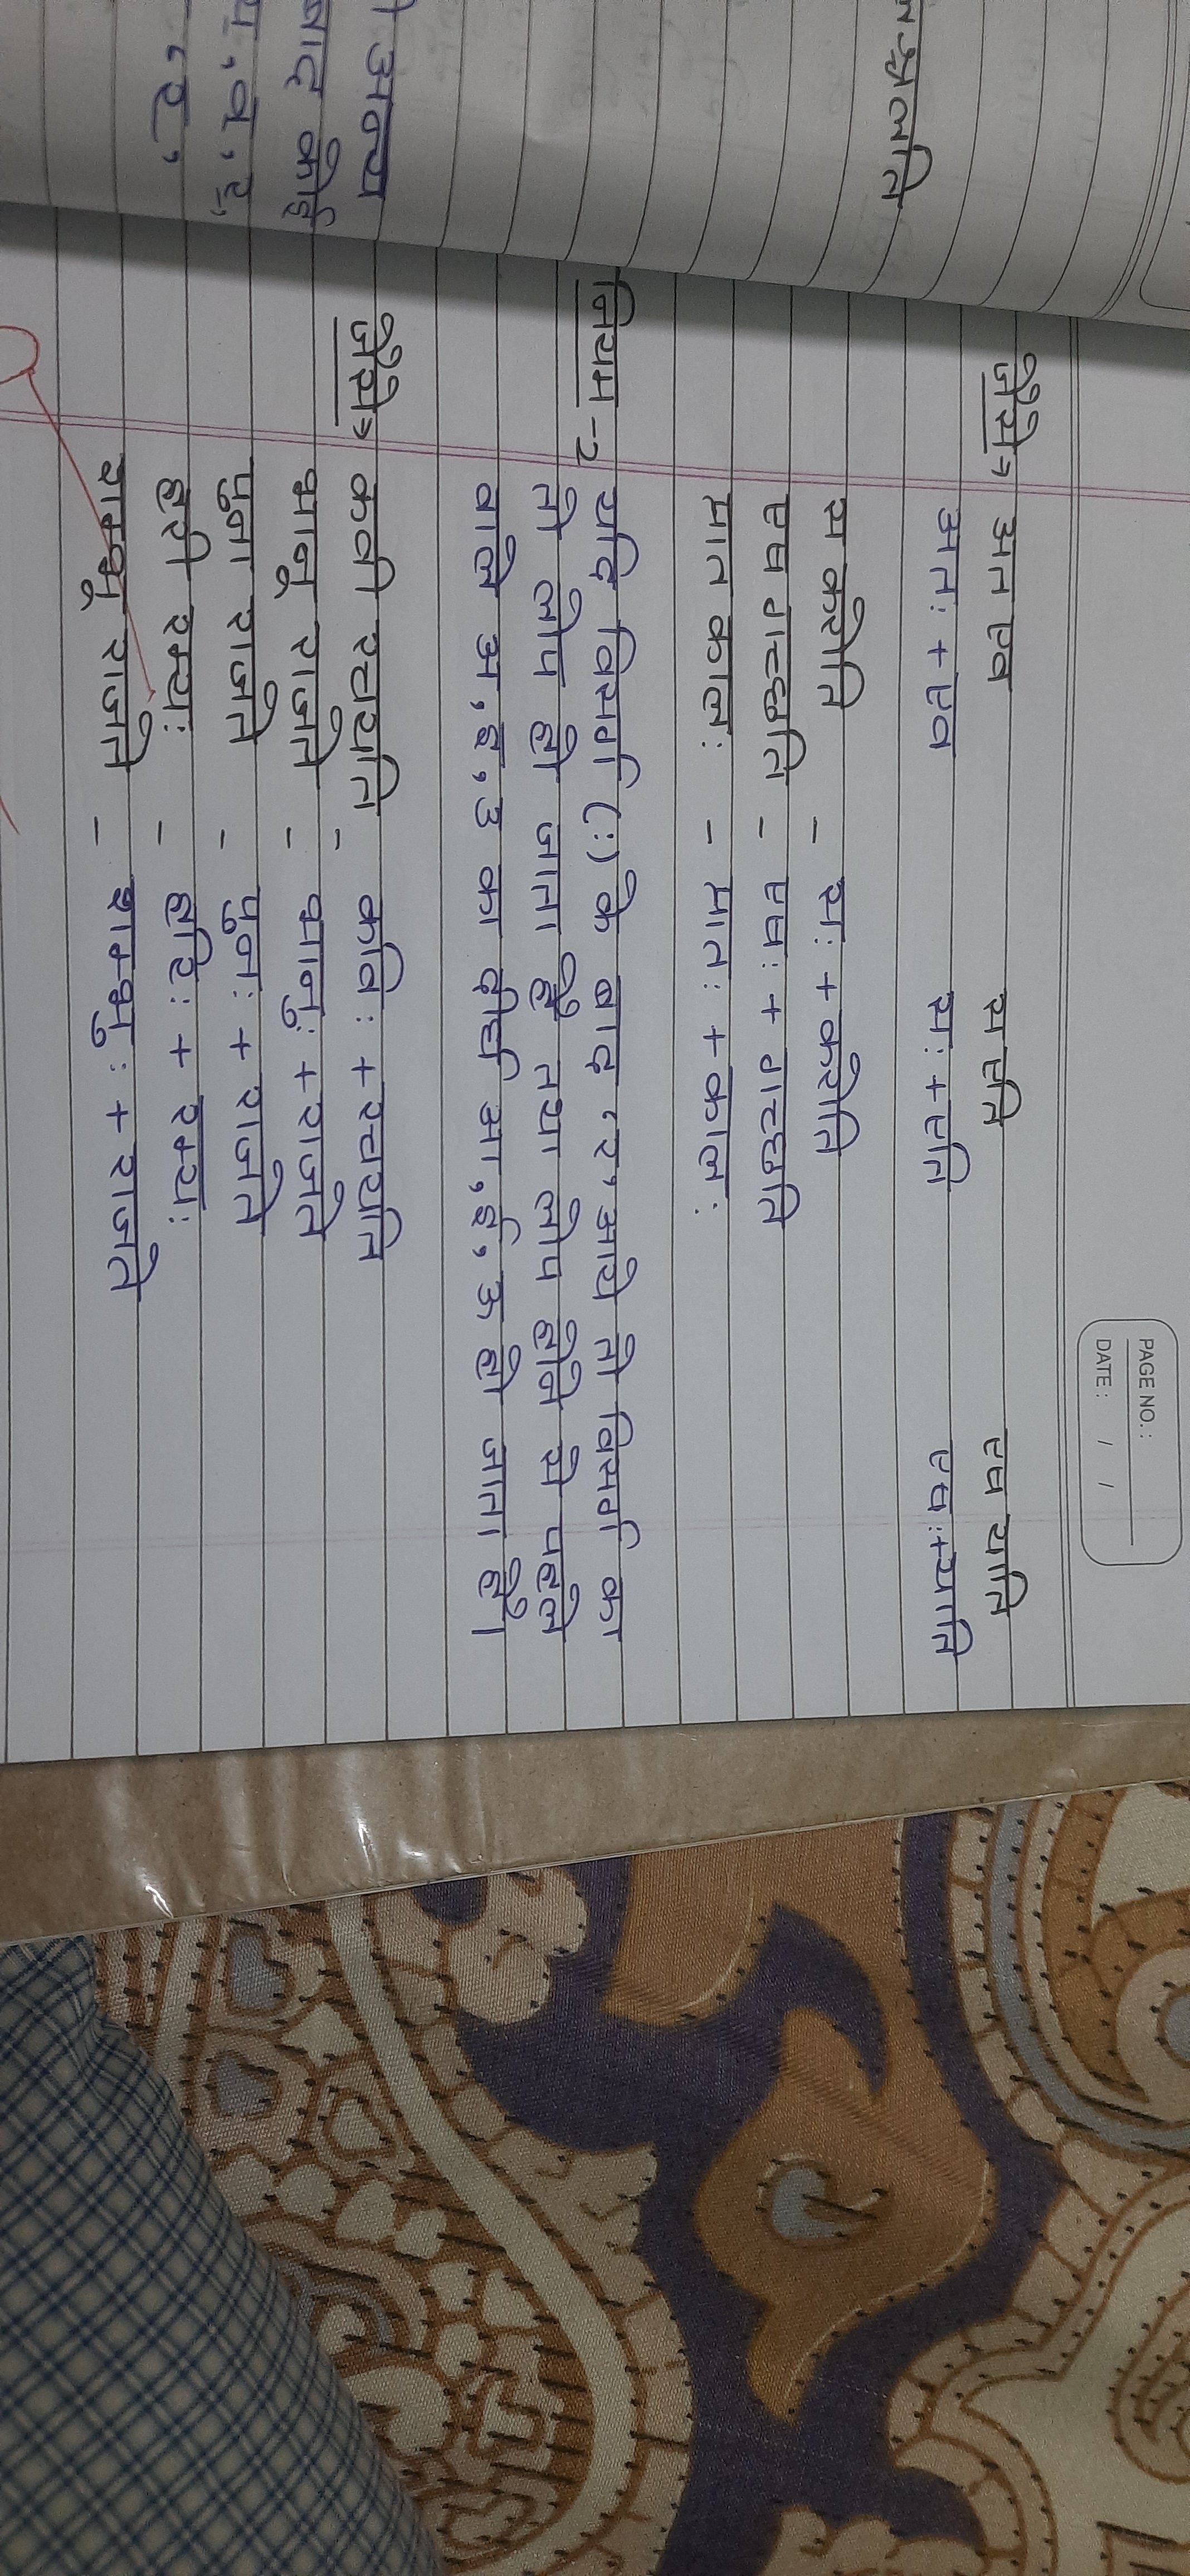 PAGE NO. :
DATE : / /
जैसे> अत एव स एति एष याति
अतः + एव सः + एति एषः + याति
स करोति - सः + करोति
एष गच्छति - एषः + गच्छति
मात कालः - मातः + कालः
नियम -2 यदि विसर्ग (:) के बाद 'र' आये तो विसर्ग का
तो लोप हो जाता है तथा लोप होने से पहले
वाले अ, इ, उ का दीर्घ आ, ई, ऊ हो जाता है।
जैसे> कवी रचयति - कविः + रचयति
भानू राजते - भानुः + राजते
पुना राजते - पुनः + राजते
हरी रम्यः - हरिः + रम्यः
शम्भू राजते - शम्भुः + राजते
अन्य
बाद कोई
व, र,